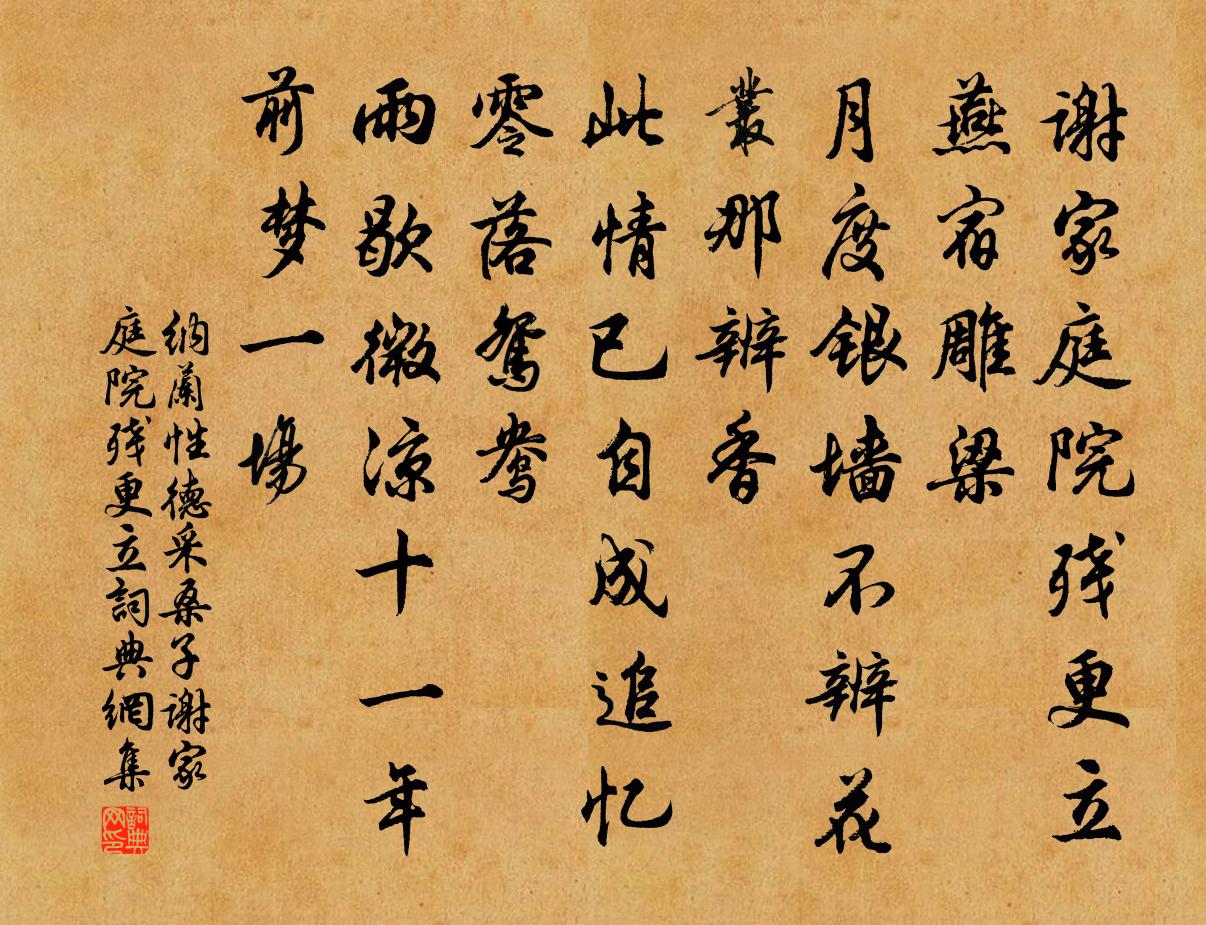 谢家庭院残更立
燕宿雕梁
月度银墙不辨花
叢那辨香
此情已自成追忆
零落鸳鸯
雨歇微涼十一年
前梦一場
納蘭性德采桑子谢家
庭院残更立詞典網集
詞典
网印